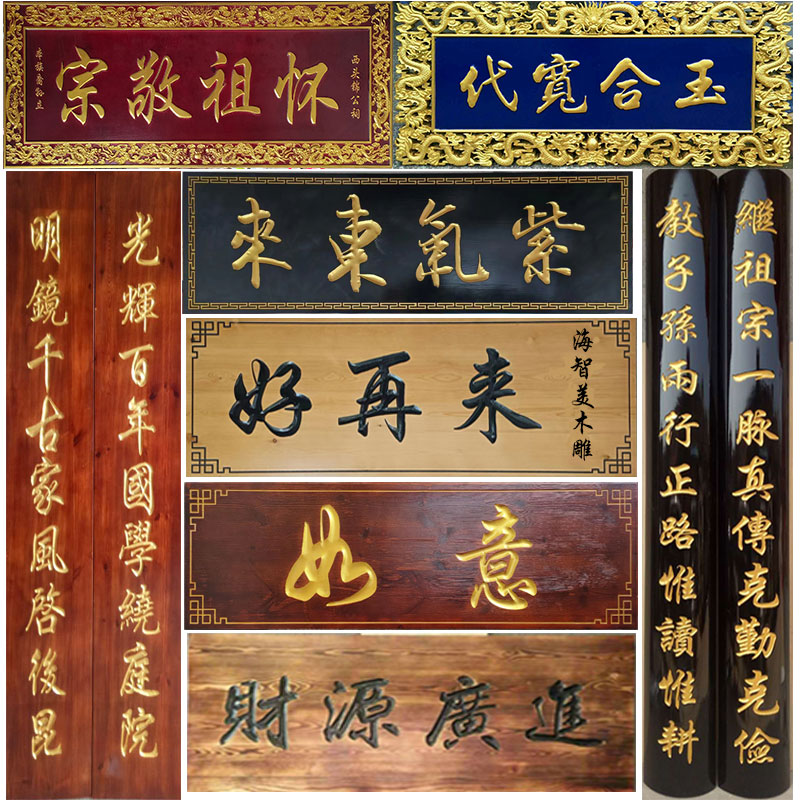 西头锦公祠
怀祖敬宗
玉合寬代
光輝百年國學繞庭院
明鏡千古家風啓後昆
紫氣東來
好再来
海智美木雕
如意
財源廣進
繼祖宗一脉真傳克勤克儉
教子孫兩行正路惟讀惟耕